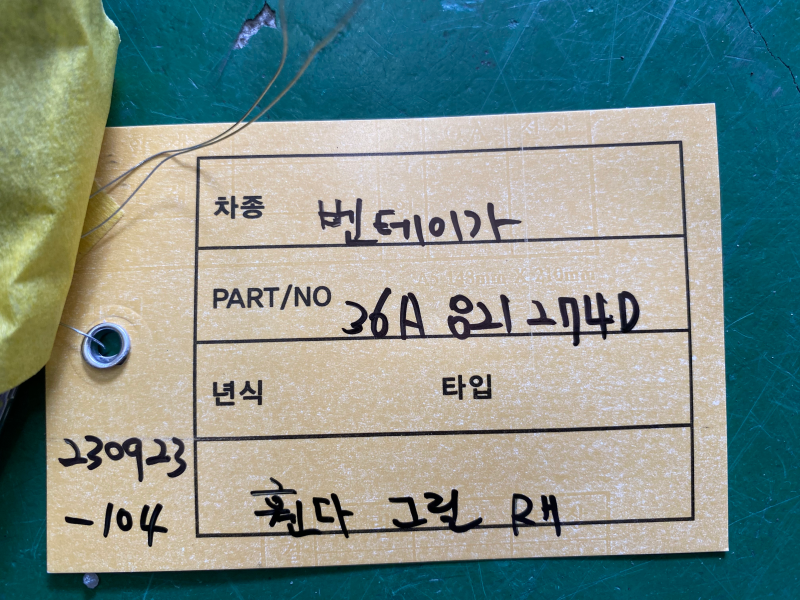 차종 벤테이가
PART/NO 36A 821 274D
년식 타입
230923
-104
휀다 그릴 RH